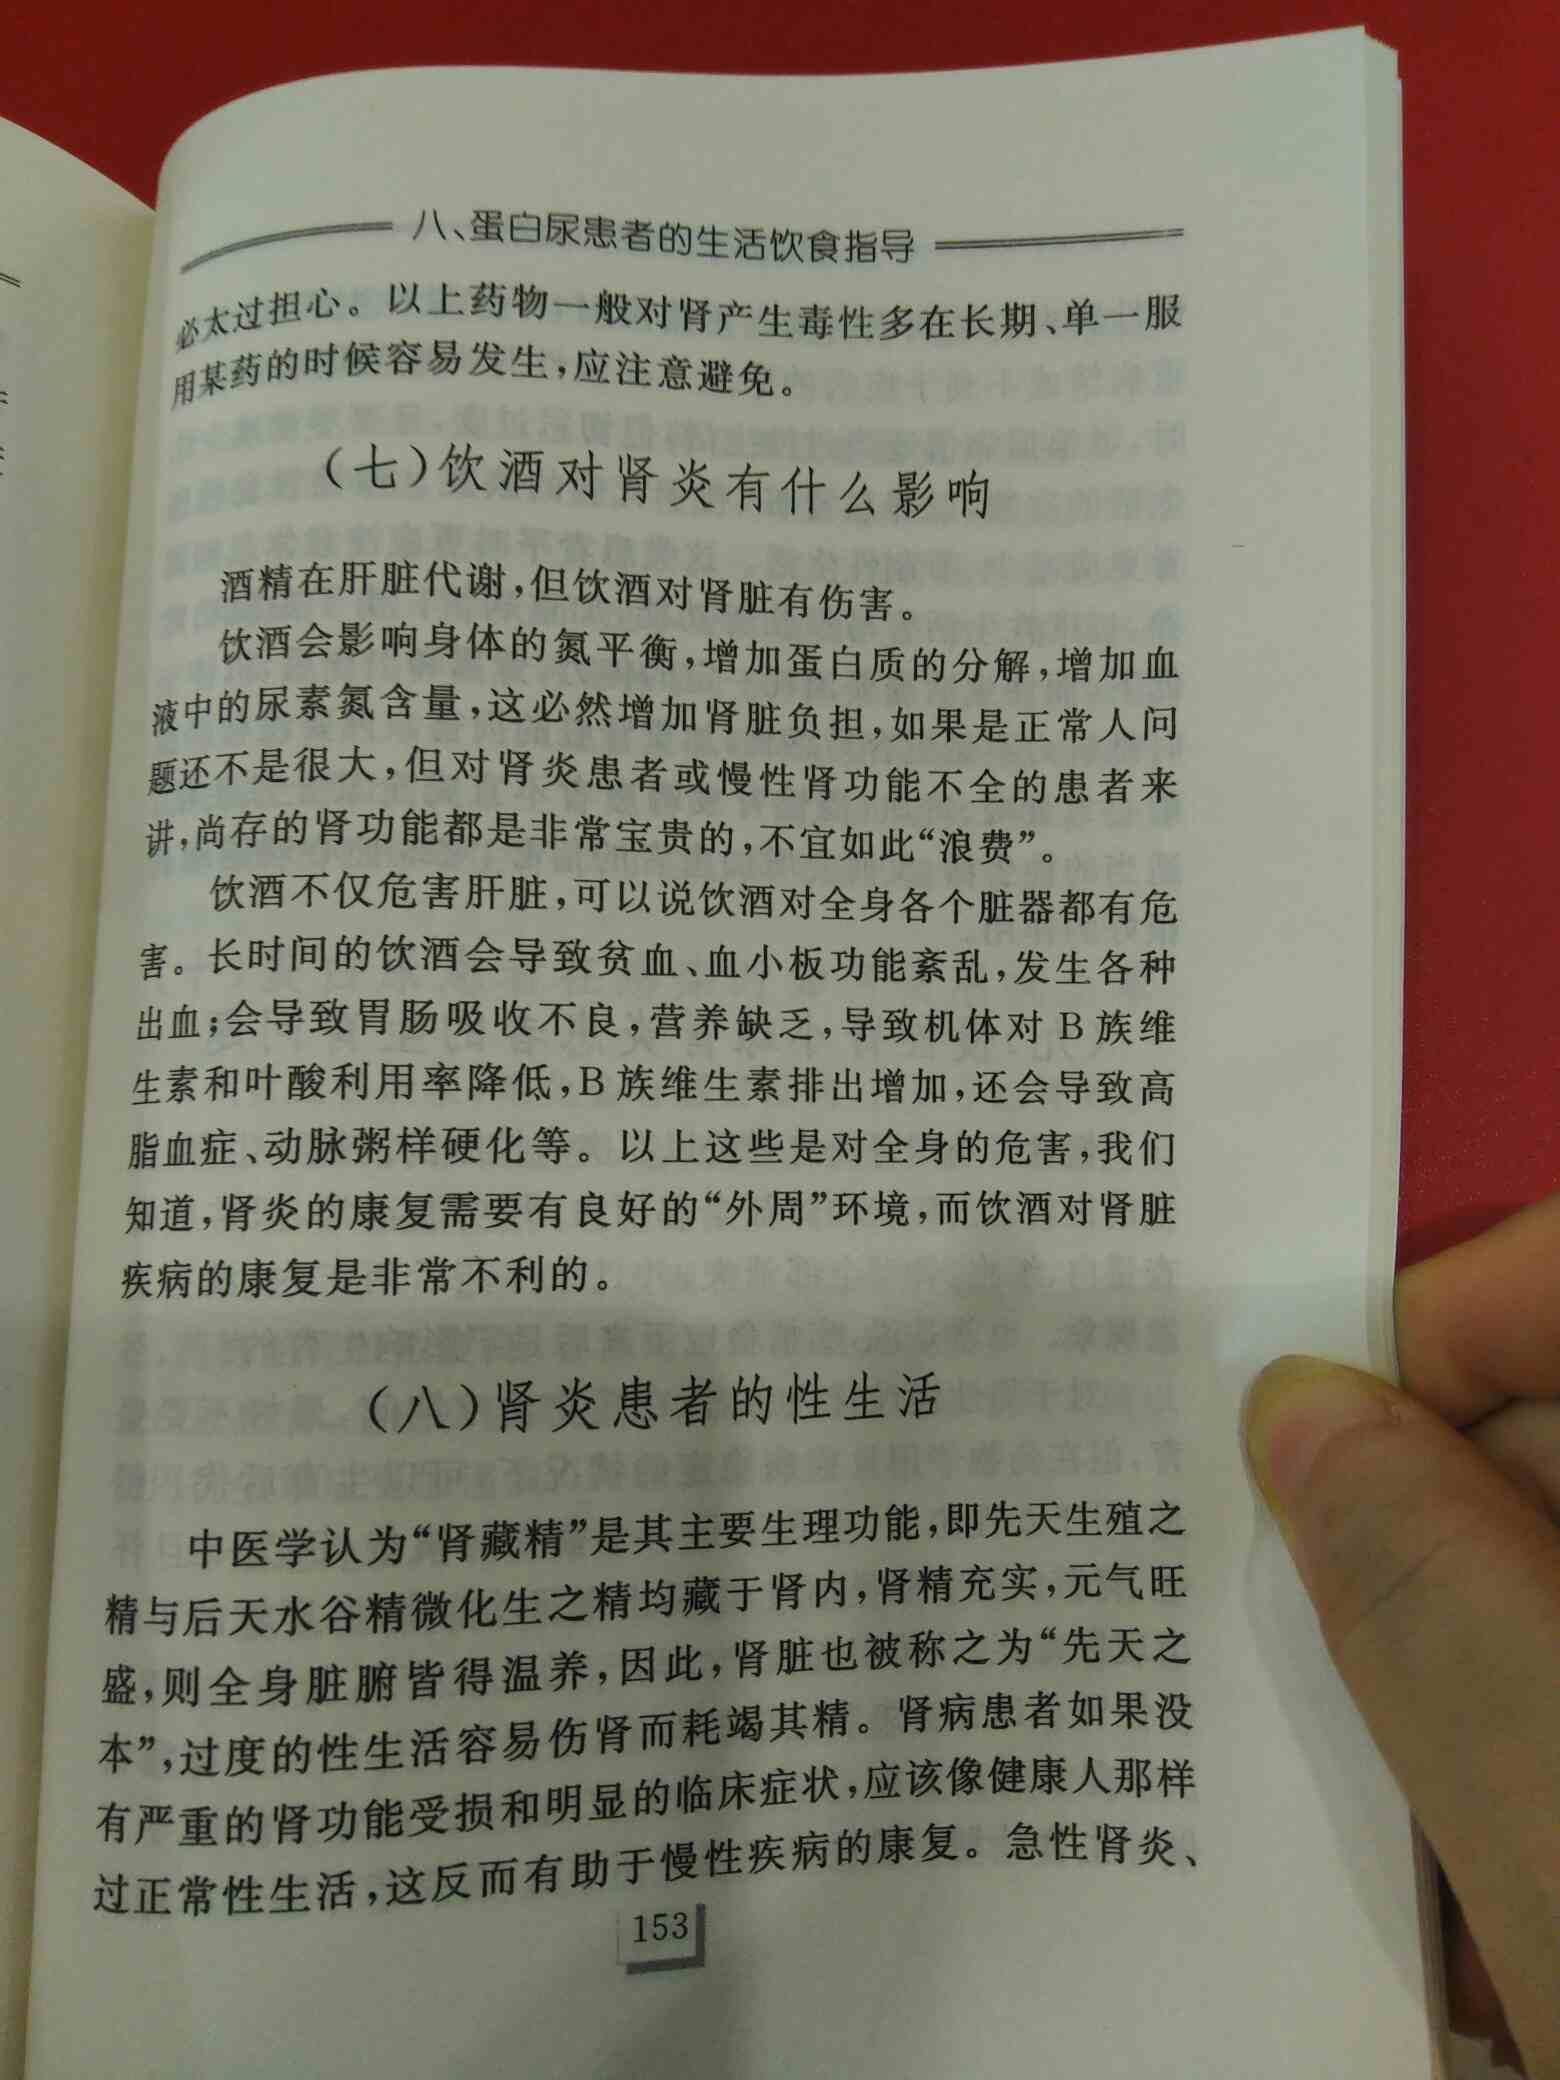 八、蛋白尿患者的生活饮食指导
必太过担心。以上药物一般对肾产生毒性多在长期、单一服
用某药的时候容易发生，应注意避免。
（七）饮酒对肾炎有什么影响
酒精在肝脏代谢，但饮酒对肾脏有伤害。
饮酒会影响身体的氮平衡，增加蛋白质的分解，增加血
液中的尿素氮含量，这必然增加肾脏负担，如果是正常人问
题还不是很大，但对肾炎患者或慢性肾功能不全的患者来
讲，尚存的肾功能都是非常宝贵的，不宜如此“浪费”。
饮酒不仅危害肝脏，可以说饮酒对全身各个脏器都有危
害。长时间的饮酒会导致贫血、血小板功能紊乱，发生各种
出血；会导致胃肠吸收不良，营养缺乏，导致机体对 B 族维
生素和叶酸利用率降低，B 族维生素排出增加，还会导致高
脂血症、动脉粥样硬化等。以上这些是对全身的危害，我们
知道，肾炎的康复需要有良好的“外周”环境，而饮酒对肾脏
疾病的康复是非常不利的。
（八）肾炎患者的性生活
中医学认为“肾藏精”是其主要生理功能，即先天生殖之
精与后天水谷精微化生之精均藏于肾内，肾精充实，元气旺
盛，则全身脏腑皆得温养，因此，肾脏也被称之为“先天之
本”，过度的性生活容易伤肾而耗竭其精。肾病患者如果没
有严重的肾功能受损和明显的临床症状，应该像健康人那样
过正常性生活，这反而有助于慢性疾病的康复。急性肾炎、
153